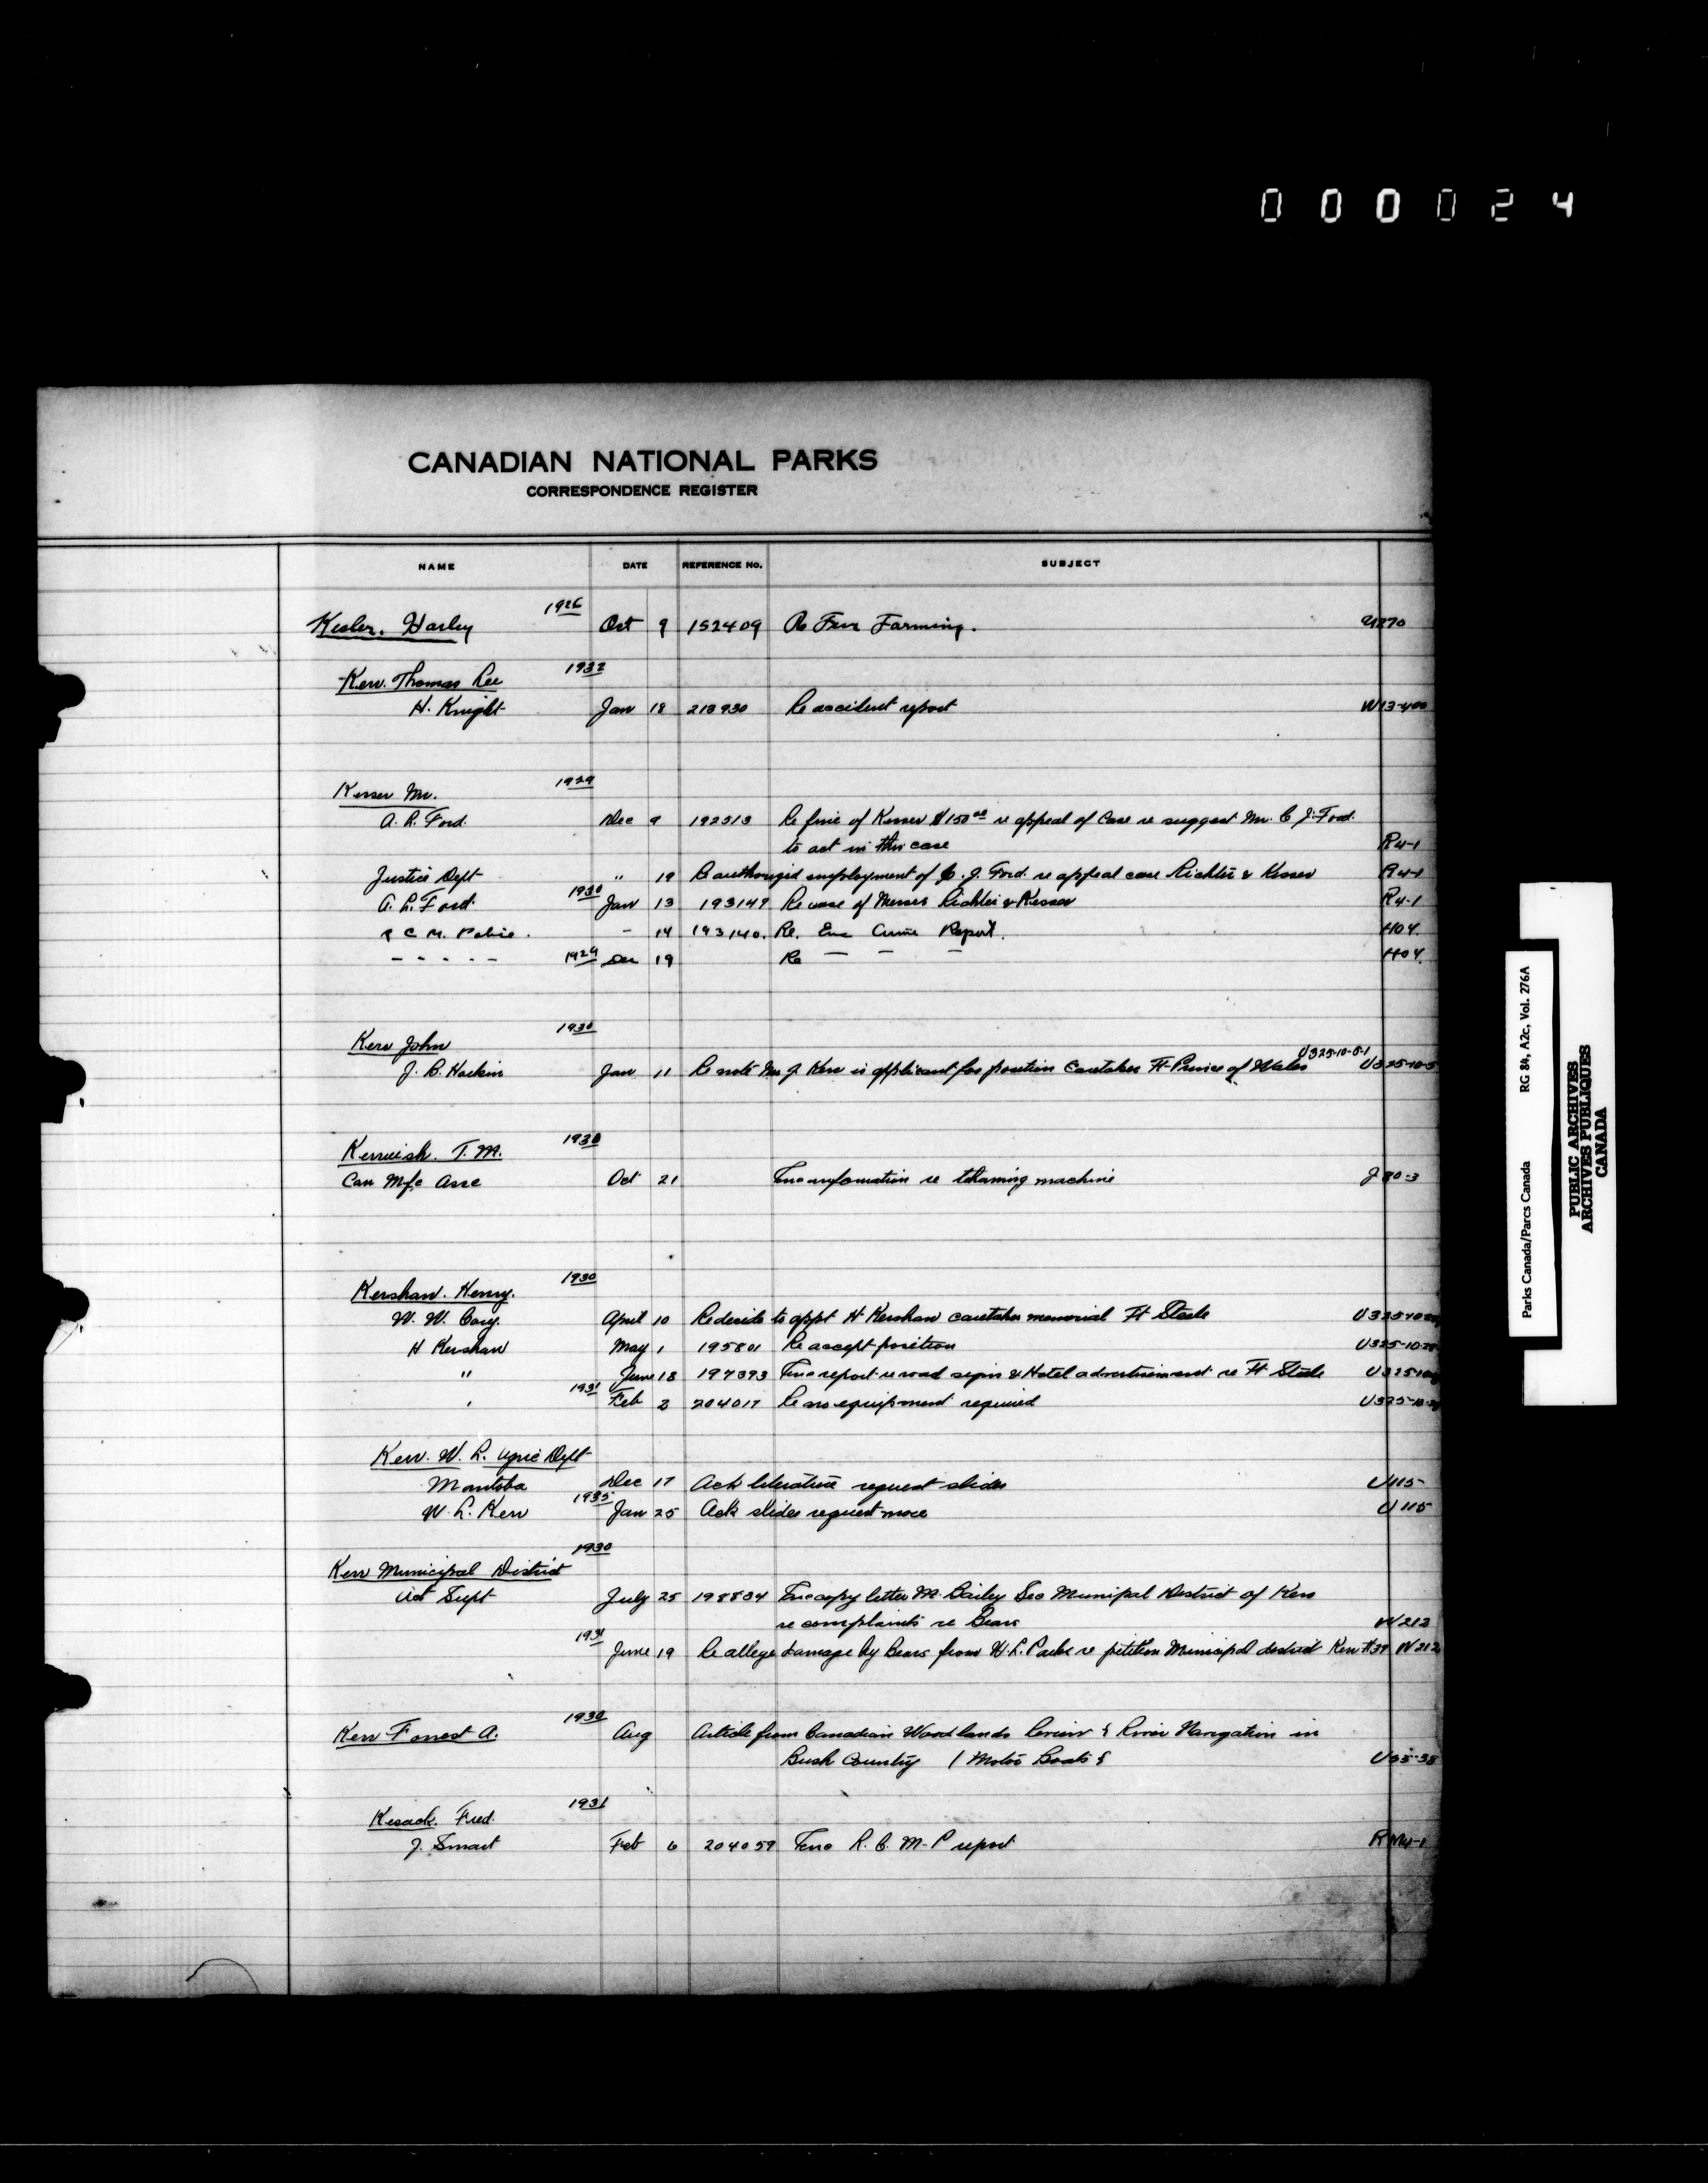 000024
CANADIAN NATIONAL PARKS
CORRESPONDENCE REGISTER
NAME DATE REFERENCE No. SUBJECT
1926
Kesler. Harley Oct 9 152409 Re Fur Farming. U270
1932
Kerr. Thomas Lee
H. Knight Jan 18 213930 Re accident report W13-400
1929
Kesser Mr.
A. L. Ford. Dec 9 192513 Re fine of Kesser $150 00 re appeal of Case re suggest Mr. C J. Ford.
to act in this case R4-1
Justice Dept " 19 Re authorized employment of C. J. Ford. re appeal case Richter & Kesser R4-1
A. L. Ford. 1930 Jan 13 193149 Re case of Messrs Richter & Kesser R4-1
R C M. Police. - 14 193140. Re. Enc Crime Report. H04.
- - - - - 1929 Dec 19 Re — — — H04.
1930
Kerr John U325-10-5-1
J. B. Harkin Jan 11 Re note Mr J Kerr is applicant for position Caretaker Ft Prince of Wales U325-10-5
1930
Kerruish. T. M.
Can Mfc Assc Oct 21 Enc information re thawing machine J80-3
1930
Kershaw. Henry.
W. W. Cory. April 10 Re decide to appt H Kershaw caretaker memorial Ft Steele U325-10
H Kershaw May 1 195801 Re accept position U325-10
" June 18 197393 Enc report re road signs & Hotel advertisement re Ft Steele U325-10
1931
' Feb 2 204017 Re no equipment required U325-10
Kerr. W. L. Agric Dept
Manitoba Dec 17 Ack literature request slides U115
1935
W. L. Kerr Jan 25 Ack slides request more U115
1930
Kerr Municipal District
Act Supt July 25 198834 Enc copy letter M. Bailey Sec Munipal District of Kerr
re complaints re Bears W212
1931
June 19 Re allege damage by Bears from W. L. Park re petition Municipal district Kerr #39 W212
1930
Kerr Forrest A. Aug Article from Canadian Woodlands Review & River Navigation in
Bush Country ( Motor Boats U35-38
1931
Kesack. Fred.
J. Smart Feb 6 204059 Enc R. C. M. P report RM4-1
Parks Canada/Parcs Canada RG 84, A2c, Vol. 276A
PUBLIC ARCHIVES
ARCHIVES PUBLIQUES
CANADA